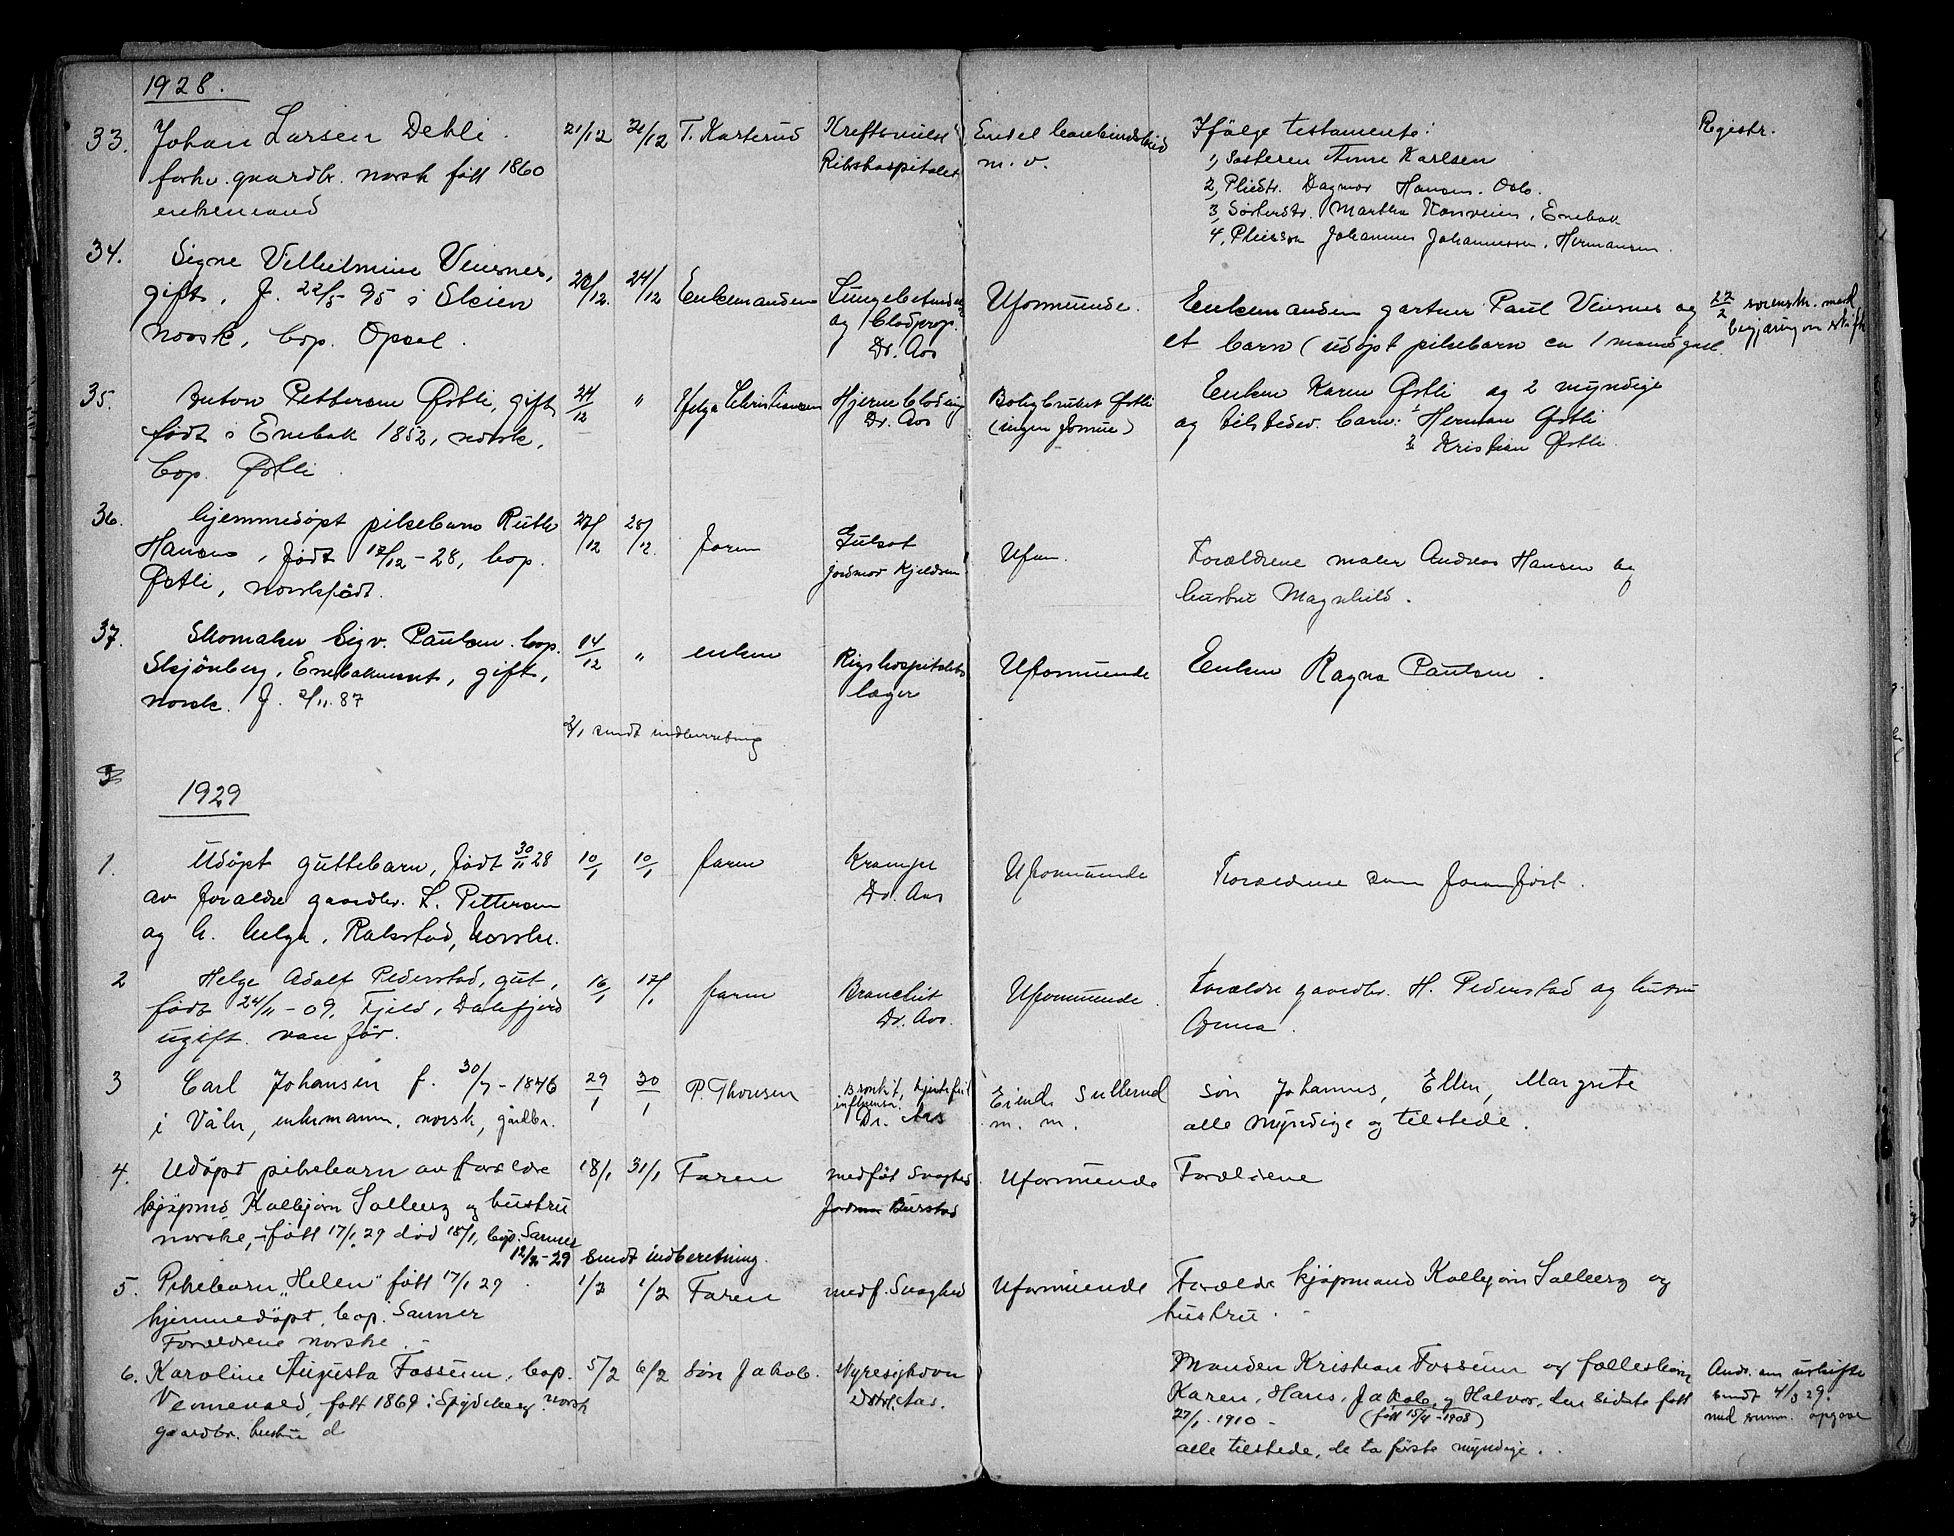 1928.
33. Johan Larsen Dehli. 21/12 21/12 T. Karterud Kreftsvulst Endel bankindskud Ifølge testamente: Registr.
forhv. gaardbr. norsk født 1860 Rikshospitalet m. v. 1, Søsteren Anne Karlsen
enkemand 2, Pliedtr. Dagmar Hansen. Oslo.
3, Søsterdtr. Martha Enebak
4, Pliesøn Johannes Johannessen, Hermansen.
34. Signe Vilhelmine Viernes, 22/12. 24/12 Enkemanden Lungebetændelse Uformuende. Enkemanden gartner Paul Viernes og 22/2 sorenskr. med
gift, f. 22/5 95 i Skien og blodprop. et barn (udøpt pikebarn ca 1 maand gael. begjæring om skifte
norsk, bop. Opsal. Dr. Aas
35. Anton Pettersen Østli, gift, 24/12 " Helga Christiansen Hjerneblødning Boligbruket Østli Enken Karen Østli og 2 myndige
født i Enebak 1852, norsk, Dr. Aas (ingen formue) og tilstedev. barn: 1 Herman Østli
bop. Østli. 2 Kristian Østli.
36. hjemmedøpt pikebarn Ruth 27/12 28/12. faren Gulsot Ufor. Forældrene maler Andreas Hansen og
Hansen, født 17/12 - 28, bop. Jordmor Kjeldsen hustru Magnhild.
Østli, norskfødt.
37. Skomaker Sigv. Paulsen bop. 14/12 " enken Rigshospitalets Uformuende Enken Ragna Paulsen.
Skjønberg, Enebakneset, gift, læger
norsk. f. 2/11.87
2/1 sendt indberetning
1929
1. Udøpt guttebarn, født 30/11 28 10/1 10/1 faren Krampe Uformuende Forældrene som foranført.
av forældre gaardbr. L. Pettersen Dr. Aas
og h. Helga, Rakstad, norske.
2 Helge Adolf Pederstad, gut, 16/1 17/1 faren Bronchit Uformuende. Forældre gaardbr. H. Pederstad og hustru
født 24/11 - 09, Fjeld, Dalefjerd Dr. Aas. Anna.
ugift. van før.
3 Carl Johansen f. 30/7 - 1846 29/1 30/1 P. Thoresen Bronkit, hjertefeil Eiend. Sullerud Søn Johannes, Ellen, Margrete
i Våler, enkemann, norsk, gårdbr. influensa. Dr. Aas m. m. alle myndige og tilstede.
4. Udøpt pikebarn av forældre 18/1 31/1 Faren medfødt Svaghed Uformuende Forældrene
kjøpmd Kolbjørn Solberg og hustru Jordmor Burstad
norske, - født 17/1 29 død 18/1, bop. Sanner
12/2 - 29 Sendt indberetning.
5. Pikebarn "Helen" født 17/1 29 1/2 1/2 Faren medf. Svaghed Uformuende Forældre kjøpmand Kolbjørn Solberg og
hjemmedøpt, bop. Sanner hustru.
Forældrene norske.
6. Karoline Augusta Fossum, bop. 5/2 6/2 Søn Jakob. Nyresykdom Manden Kristian Fossum og fællesbarn Andr. om uskifte
født 1869 i Spydeberg norsk Distrl. Aas. Karen, Hans, Jakob, og Halvor, den sidste født sendt 4/3 29.
gaardbr. hustru d 27/1 - 1910 - (født 15/4 - 1908) med summ. opgave
alle tilstede, de to første myndige.